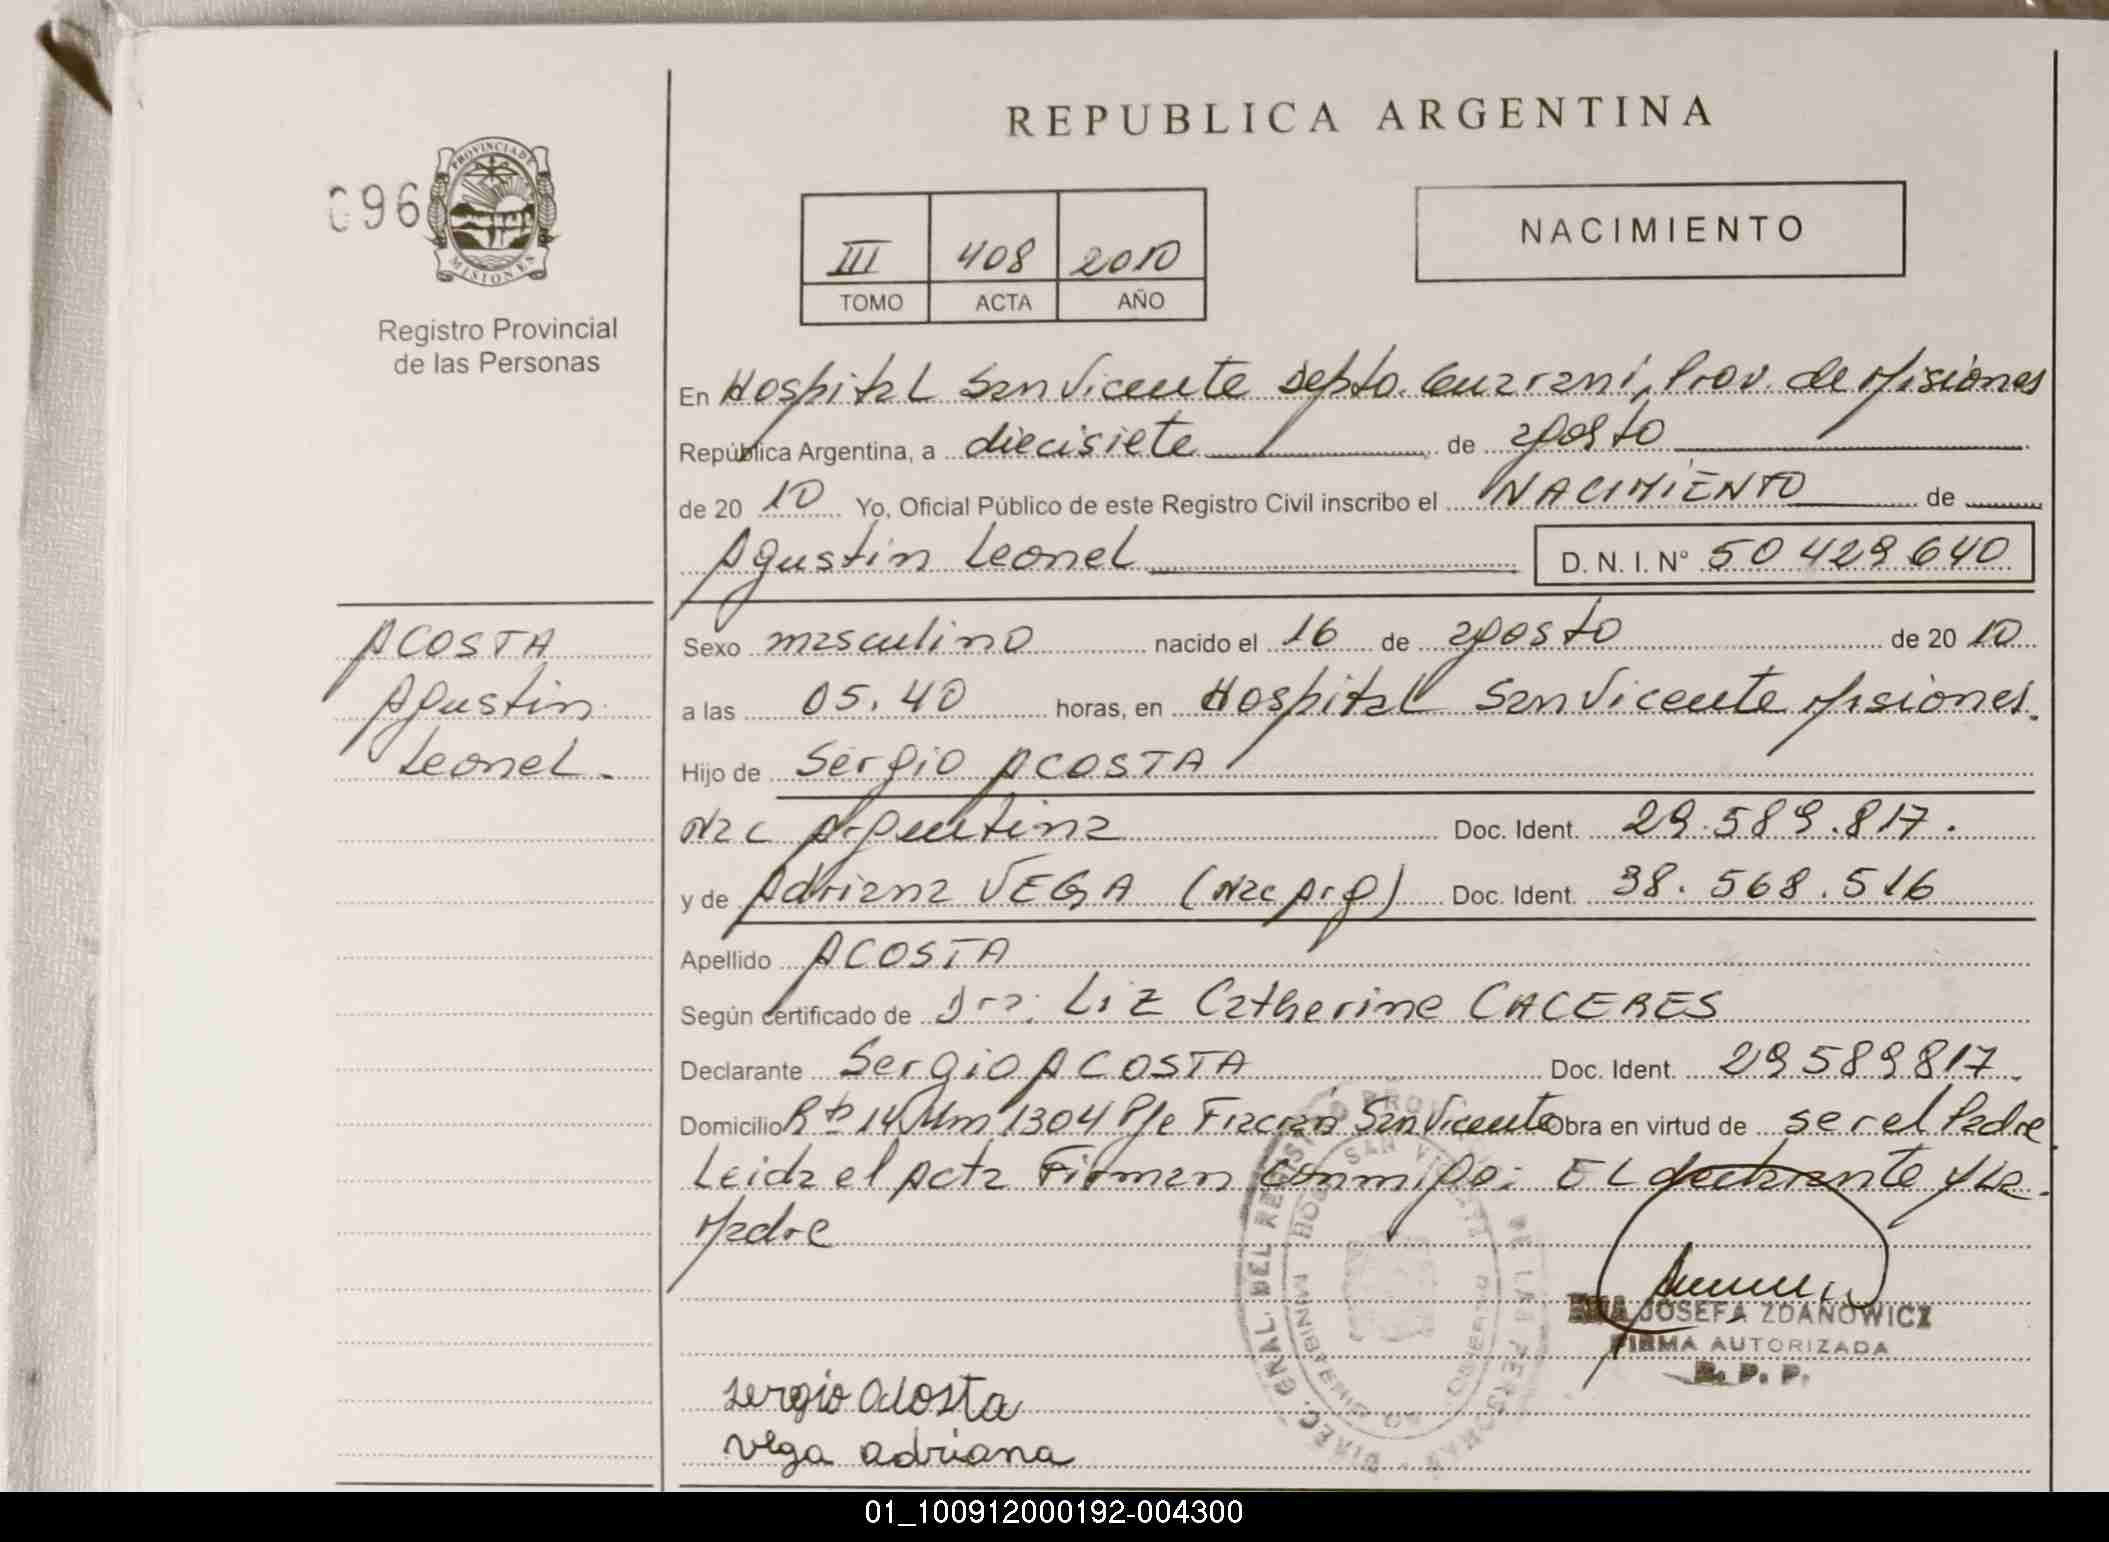 REPUBLICA ARGENTINA
096
PROVINCIA DE
MISIONES
Registro Provincial
de las Personas
III 408 2010
TOMO ACTA AÑO
NACIMIENTO
En Hospital San Vicente Depto. Guarani, Prov. de Misiones
República Argentina, a diecisiete de agosto
de 20 10 Yo, Oficial Público de este Registro Civil inscribo el NACIMIENTO de
Agustin Leonel D. N. I. N° 50429640
ACOSTA
Agustin
Leonel.
Sexo masculino nacido el 16 de agosto de 20 10
a las 05.40 horas, en Hospital San Vicente Misiones.
Hijo de Sergio ACOSTA
Nac Argentina Doc. Ident. 29.589.817.
y de Adriana VEGA (Nac Arg) Doc. Ident. 38.568.516
Apellido ACOSTA
Según certificado de Dra. Liz Catherine CACERES
Declarante Sergio ACOSTA Doc. Ident. 29589817.
Domicilio 14 Km 1304 Pje San Vicente Obra en virtud de ser el Padre
Leida el Acta Firman conmigo: EL declarante y la
Madre
JOSEFA ZDANOWICZ
FIRMA AUTORIZADA
R. P. P.
DIREC. GRAL. DEL REGISTRO PROV. DE LAS PERSONAS
SAN VICENTE
Sergio Acosta
Vega adriana
01_100912000192-004300